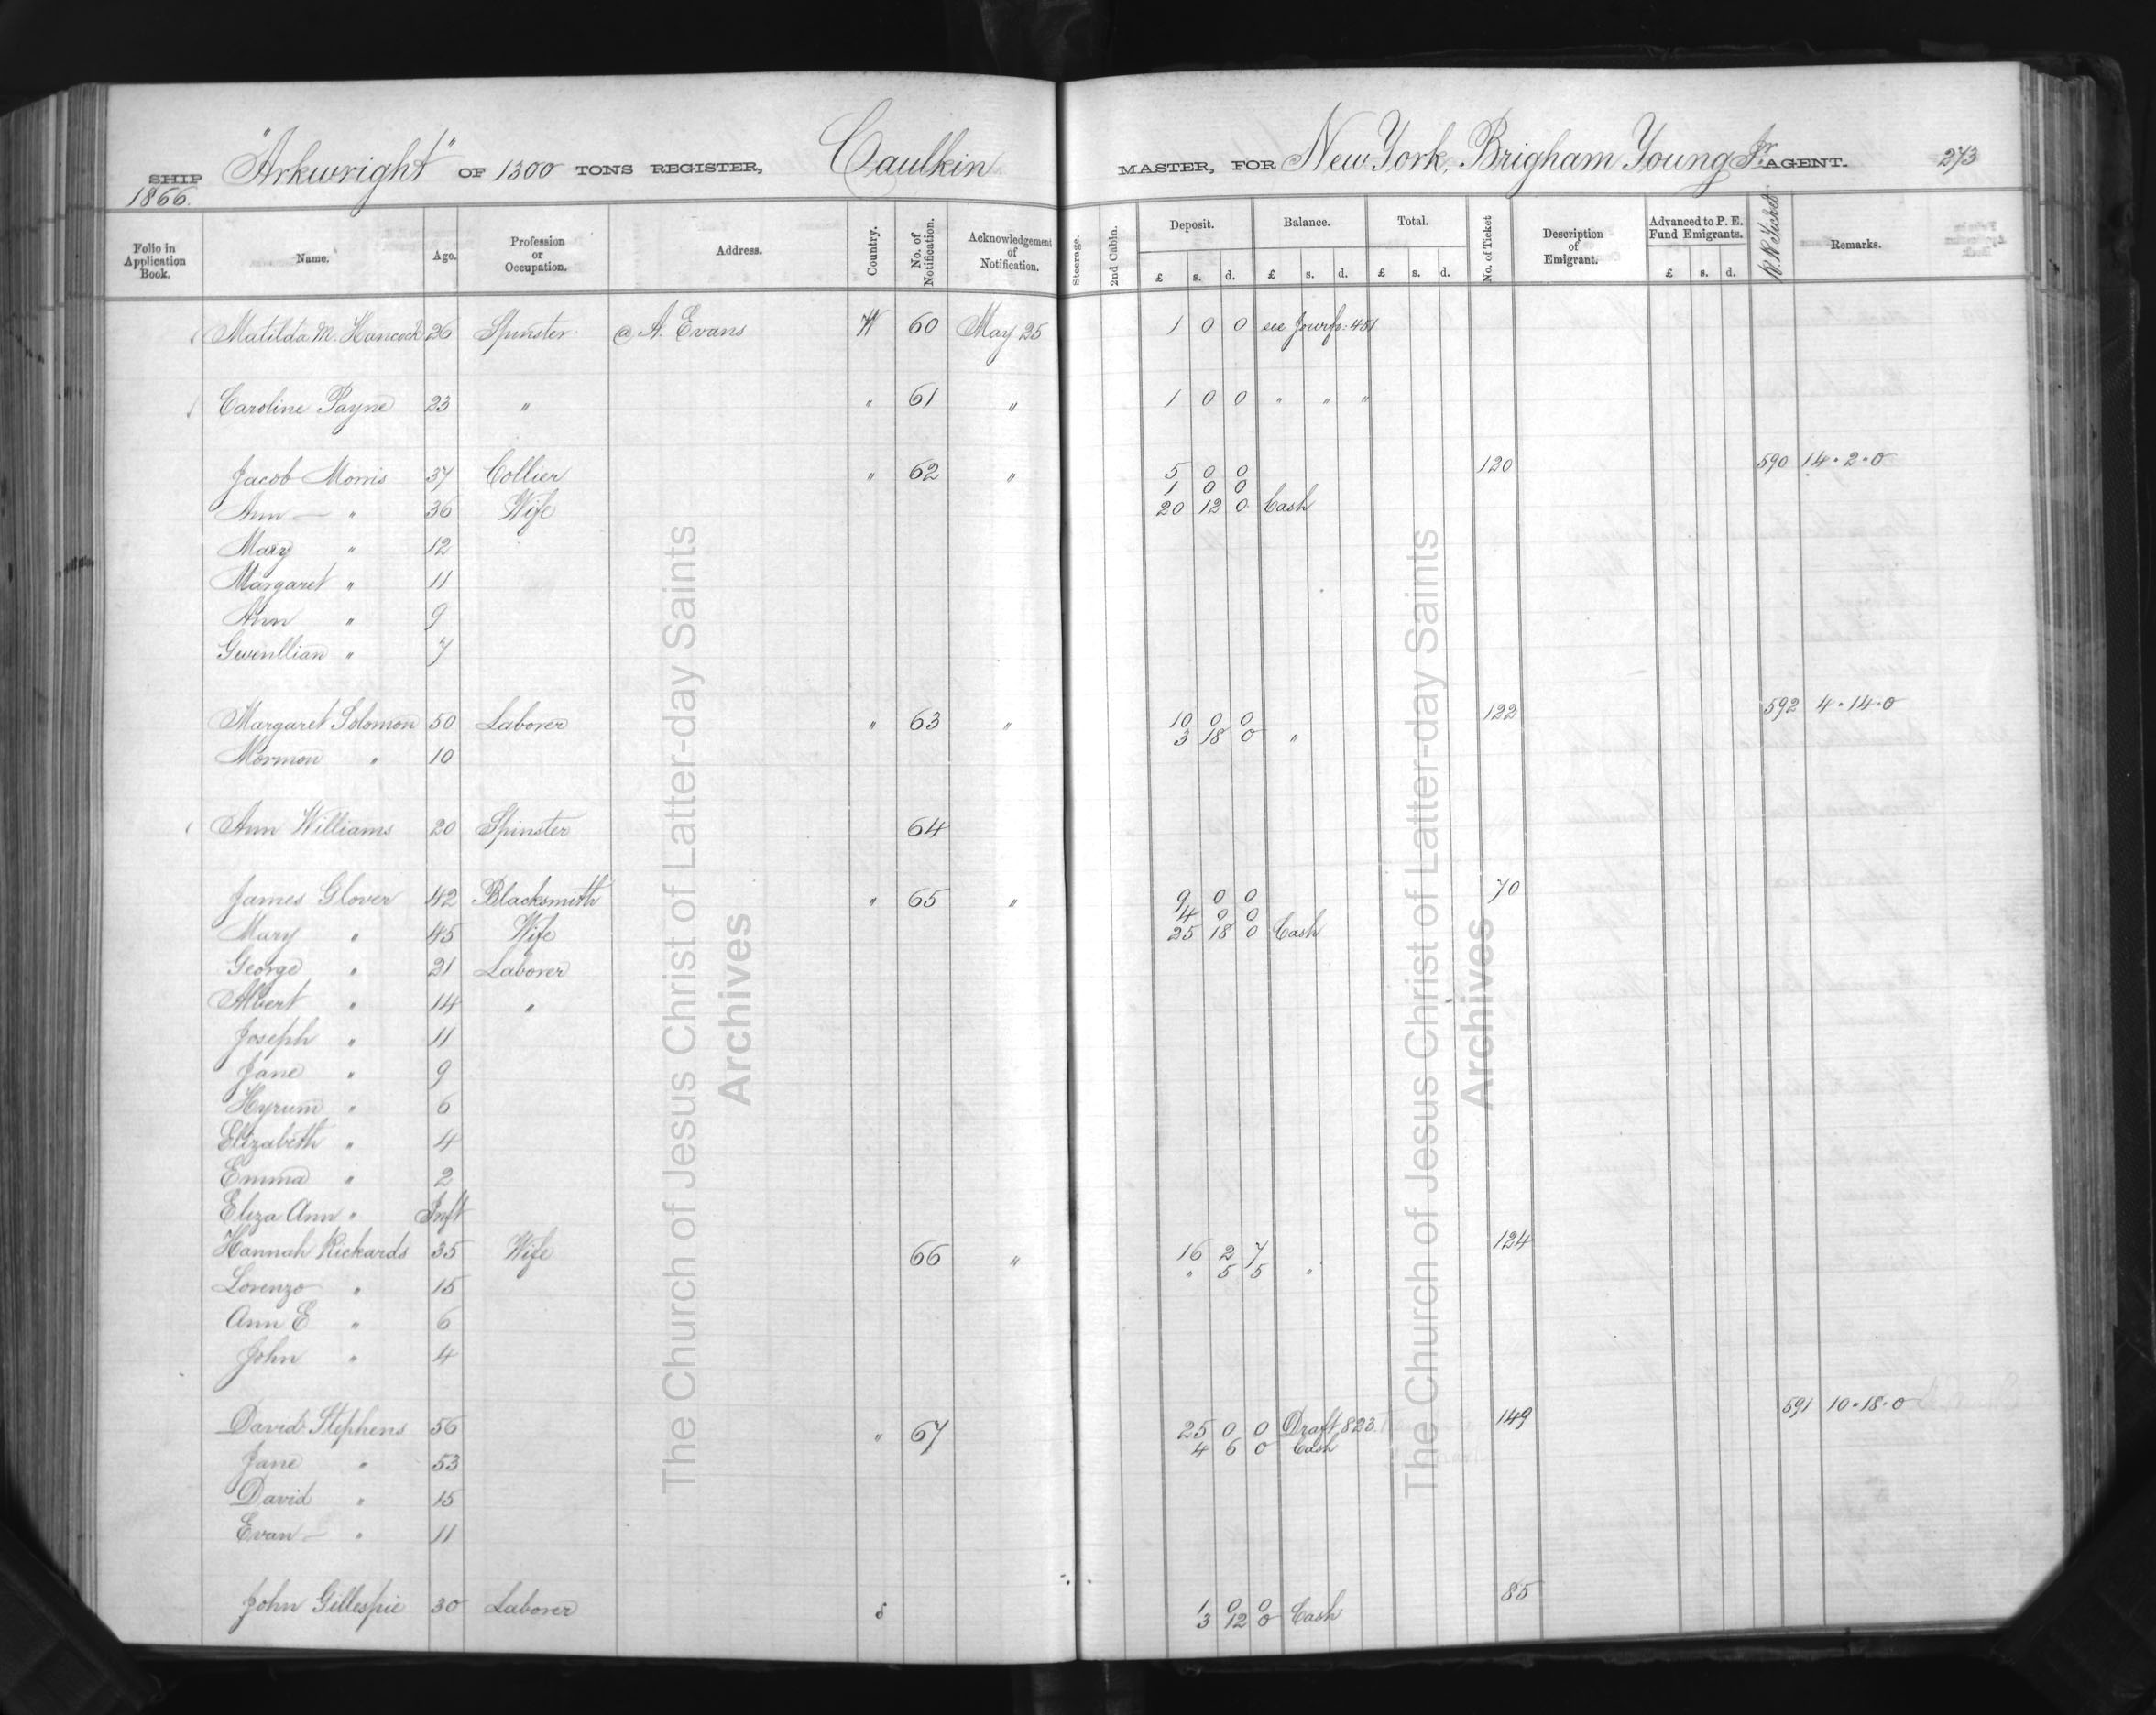 SHIP "Arkwright" OF 1300 TONS REGISTER, Caulkin MASTER, FOR New York, Brigham Young Jr. AGENT. 273
1866.
Folio in Application Book. Name. Age. Profession or Occupation. Address. Country. No. of Notification. Acknowledgement of Notification. Steerage. 2nd Cabin. Deposit. Balance. Total. No. of Ticket Description of Emigrant. Advanced to P. E. Fund Emigrants. R.R. Ticket Remarks.
£ s. d. £ s. d. £ s. d. £ s. d.
Matilda M. Hancock 26 Spinster @ A. Evans W 60 May 25 1 0 0 see Jour fo: 451
Caroline Payne 23 " " 61 " 1 0 0 " " "
Jacob Morris 37 Collier " 62 " 5 0 0 120 590 14 . 2 . 0
1 0 0
Ann — " 36 Wife 20 12 0 Cash
Mary " 12
Margaret " 11
Ann " 9
Gwenllian " 7
Margaret Solomon 50 Laborer " 63 " 10 0 0 122 592 4 . 14 . 0
3 18 0 "
Mormon " 10
Ann Williams 20 Spinster 64
James Glover 42 Blacksmith " 65 " 9 0 0 70
4 0 0
Mary " 45 Wife 25 18 0 Cash
George " 21 Laborer
Albert " 14 "
Joseph " 11
Jane " 9
Hyrum " 6
Elizabeth " 4
Emma " 2
Eliza Ann " Inft
Hannah Rickards 35 Wife 66 " 16 2 7 124
" 5 5 "
Lorenzo " 15
Ann E " 6
John " 4
David Stephens 56 " 67 25 0 0 Draft 823 149 591 10 . 18 . 0
4 6 0 Cash
Jane " 53
David " 15
Evan — " 11
John Gillespie 30 Laborer 1 0 0 85
3 12 0 Cash
The Church of Jesus Christ of Latter-day Saints
Archives
The Church of Jesus Christ of Latter-day Saints
Archives